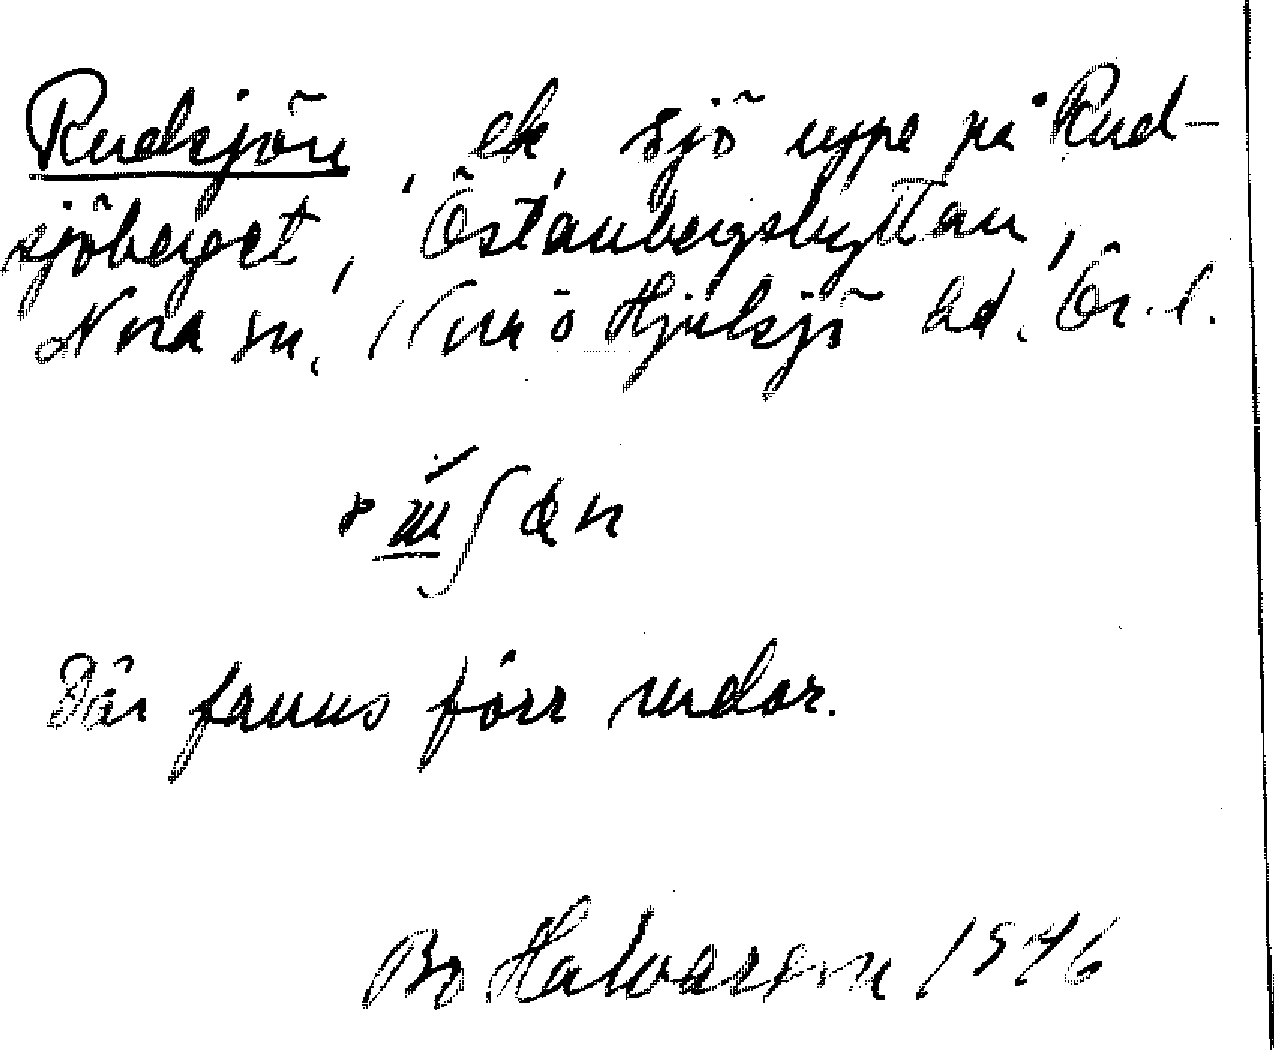 Rudsjön, ek, sjö uppe på Rud-
sjöberget, Östanbergshyttan,
Nora sn. Nora o Hjulsjö hd. Ör. l.
Där fanns förr rudor.
Bo Halvarson 1946